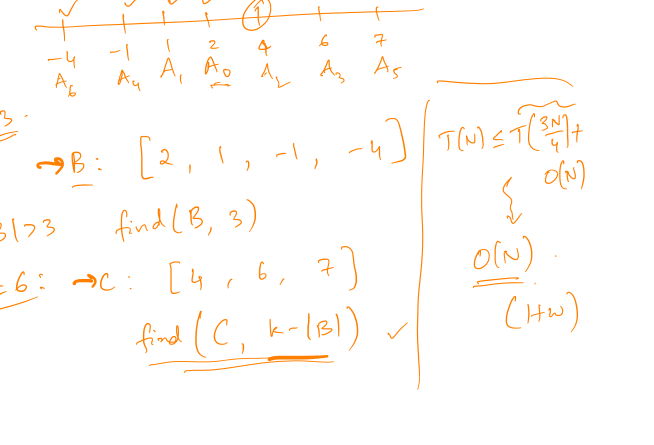 -4 -1 1 2 4 6 7
A6 A4 A1 A0 A2 A3 A5
3.
→ B : [2, 1, -1, -4]
|>3 find(B, 3)
= 6 : → C : [4, 6, 7]
find(C, k-|B|) ✓
T(N) ≤ T(3N/4) +
O(N)
O(N).
(HW)